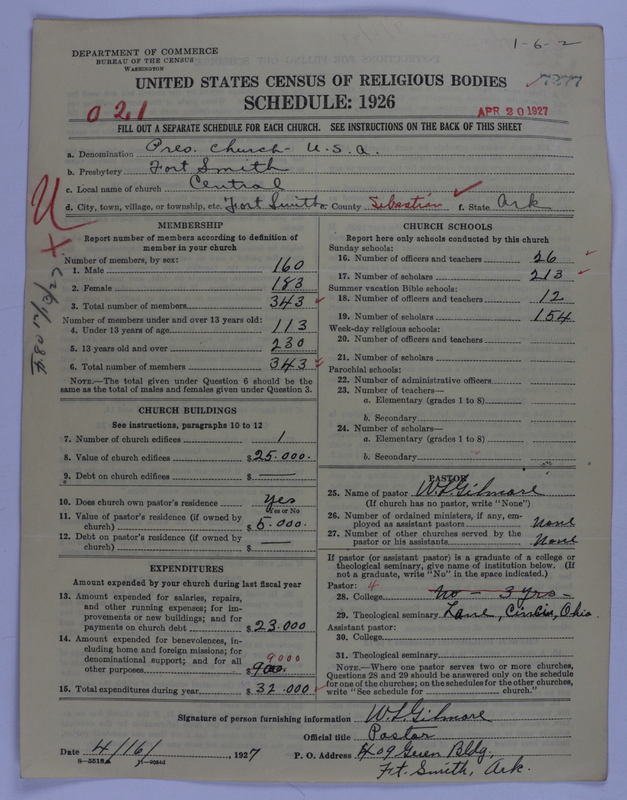 DEPARTMENT OF COMMERCE
BUREAU OF THE CENSUS
WASHINGTON
1-6-2
UNITED STATES CENSUS OF RELIGIOUS BODIES
7277
SCHEDULE: 1926
021
APR 20 1927
FILL OUT A SEPARATE SCHEDULE FOR EACH CHURCH. SEE INSTRUCTIONS ON THE BACK OF THIS SHEET
a. Denomination Pres. Church - U.S.A.
b. Presbytery Fort Smith
c. Local name of church Central
d. City, town, village, or township, etc. Fort Smith e. County Sebastian f. State Ark
MEMBERSHIP
Report number of members according to definition of
member in your church
Number of members, by sex:
1. Male 160
2. Female 183
3. Total number of members 343
Number of members under and over 13 years old:
4. Under 13 years of age 113
5. 13 years old and over 230
6. Total number of members 343
NOTE.—The total given under Question 6 should be the
same as the total of males and females given under Question 3.
CHURCH BUILDINGS
See instructions, paragraphs 10 to 12
7. Number of church edifices 1
8. Value of church edifices $25.000.
9. Debt on church edifices $ —
10. Does church own pastor's residence yes
Yes or No
11. Value of pastor's residence (if owned by
church) $5.000.
12. Debt on pastor's residence (if owned by
church) $ —
EXPENDITURES
Amount expended by your church during last fiscal year
13. Amount expended for salaries, repairs,
and other running expenses; for im-
provements or new buildings; and for
payments on church debt $23.000
14. Amount expended for benevolences, in-
cluding home and foreign missions; for
denominational support; and for all 9000
other purposes $900.
15. Total expenditures during year $32.000
CHURCH SCHOOLS
Report here only schools conducted by this church
Sunday schools:
16. Number of officers and teachers 26
17. Number of scholars 213
Summer vacation Bible schools:
18. Number of officers and teachers 12
19. Number of scholars 154
Week-day religious schools:
20. Number of officers and teachers
21. Number of scholars
Parochial schools:
22. Number of administrative officers
23. Number of teachers—
a. Elementary (grades 1 to 8)
b. Secondary
24. Number of scholars—
a. Elementary (grades 1 to 8)
b. Secondary
PASTOR
25. Name of pastor W.S. Gilmore
(If church has no pastor, write "None")
26. Number of ordained ministers, if any, em-
ployed as assistant pastors None
27. Number of other churches served by the
pastor or his assistants None
If pastor (or assistant pastor) is a graduate of a college or
theological seminary, give name of institution below. (If
not a graduate, write "No" in the space indicated.)
Pastor: 4
28. College No - 3 yrs -
29. Theological seminary Lane, Cinbin, Ohio.
Assistant pastor:
30. College
31. Theological seminary
NOTE.—Where one pastor serves two or more churches,
Questions 28 and 29 should be answered only on the schedule
for one of the churches; on the schedules for the other churches,
write "See schedule for church."
Signature of person furnishing information W.S. Gilmore
Official title Pastor
Date 4/16/, 1927 P. O. Address 409 Bldg.
Ft. Smith, Ark.
8-5518a